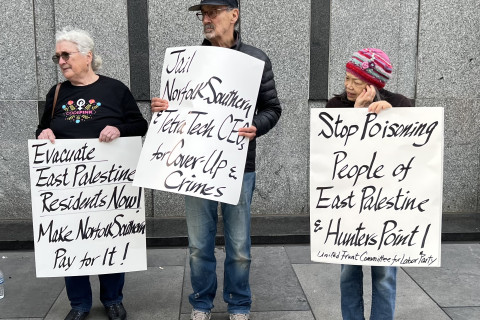 CODEPINK
Evacuate
East Palestine
Residents Now!
Make Norfolk Southern
Pay for It!
Jail
Norfolk Southern
& Tetra Tech CEO,
for Cover-Up &
Crimes
Stop Poisoning
People of
East Palestine
& Hunters Point!
United Front Committee for Labor Party